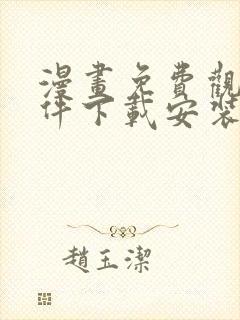 漫畫免費觀
件下載安裝
趙玉潔